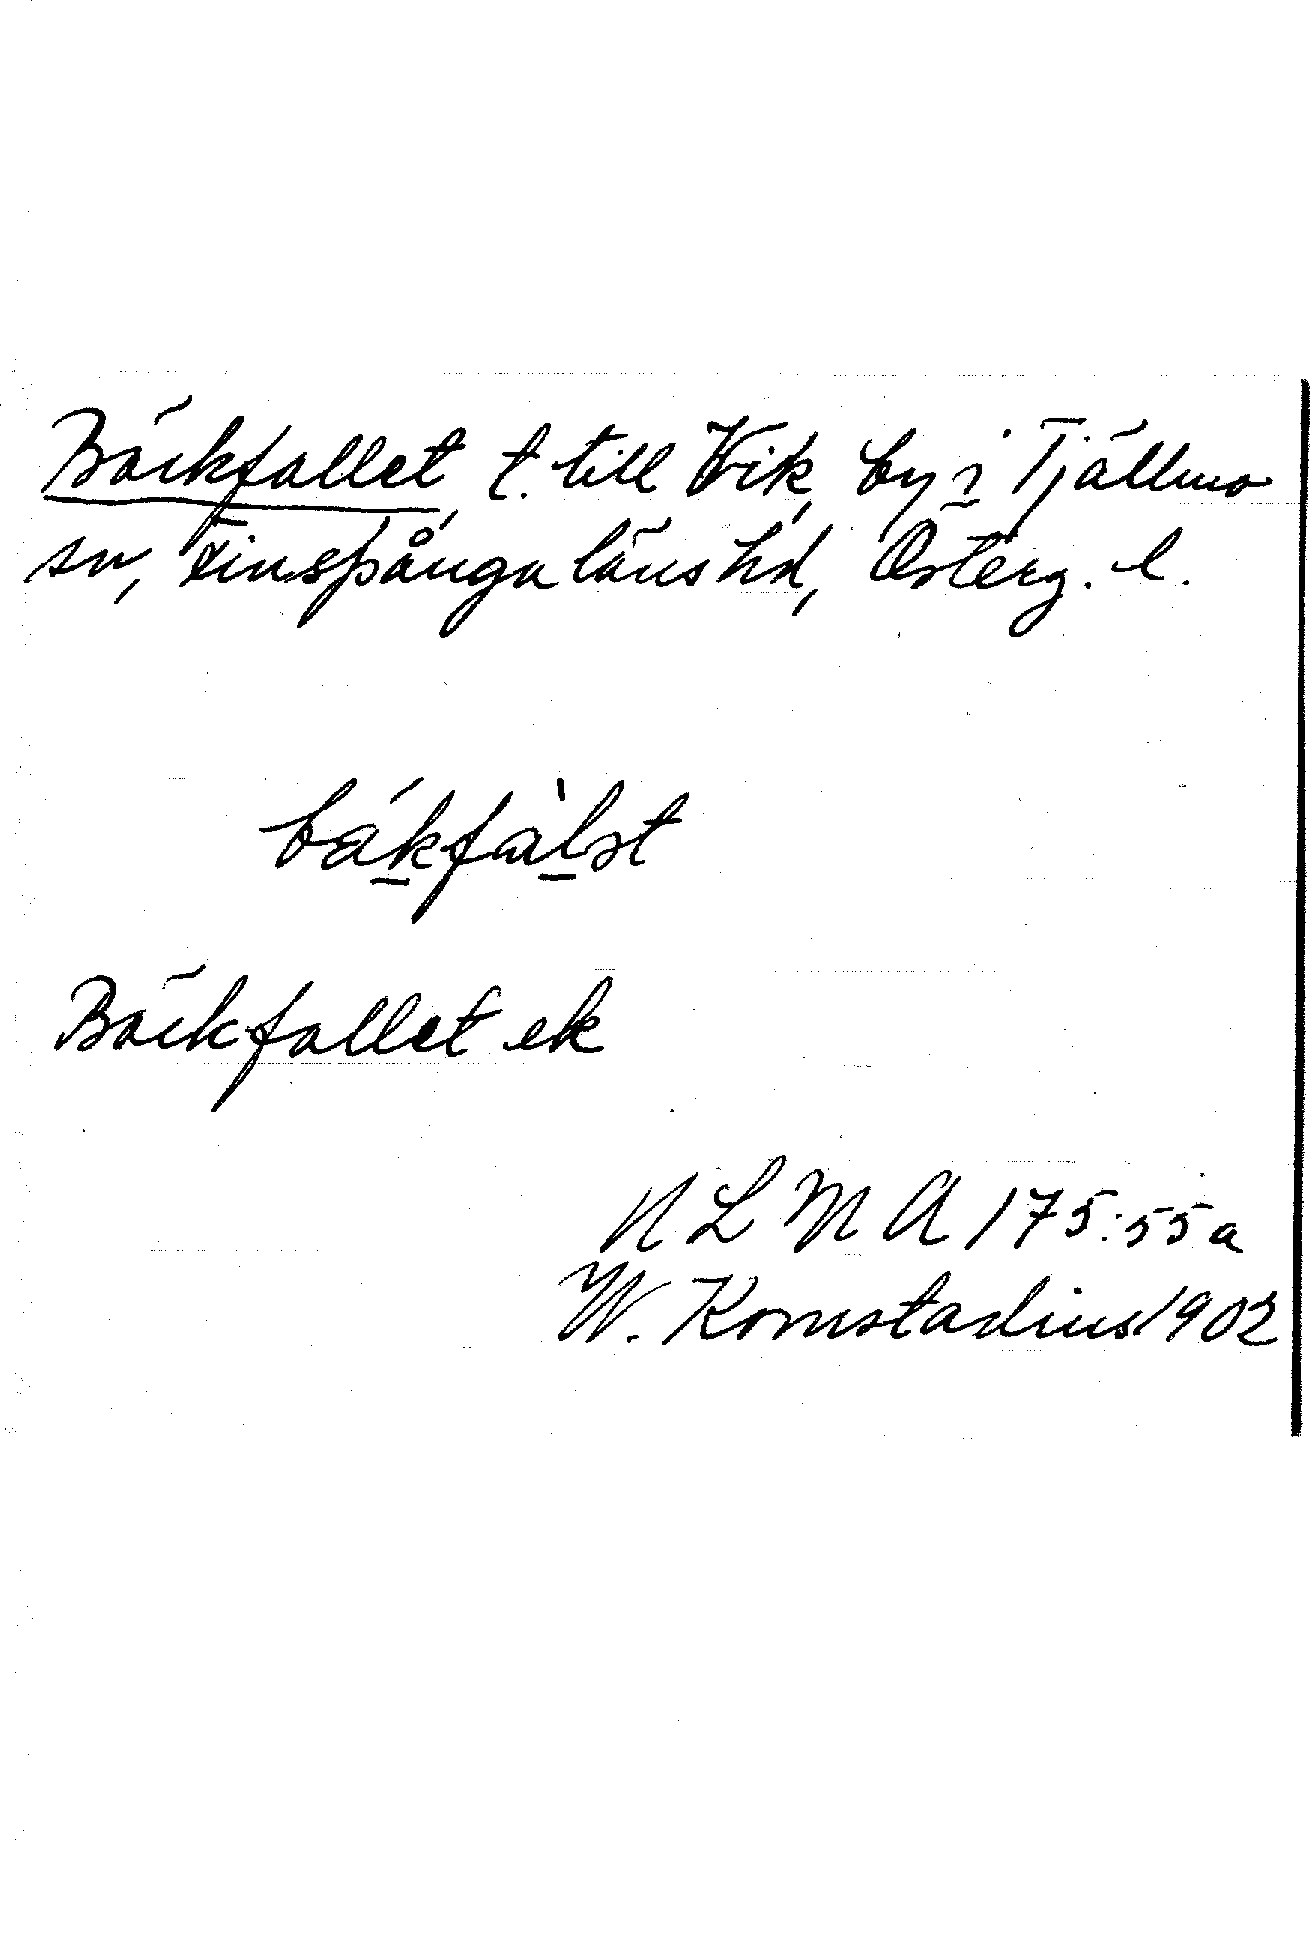 Bäckfallet, t. till Vik, by i Tjällmo
sn, Finspånga läns hd, Österg. l.
Bäckfallet ek
N L M A 175:55a
W. Kornstadius 1902